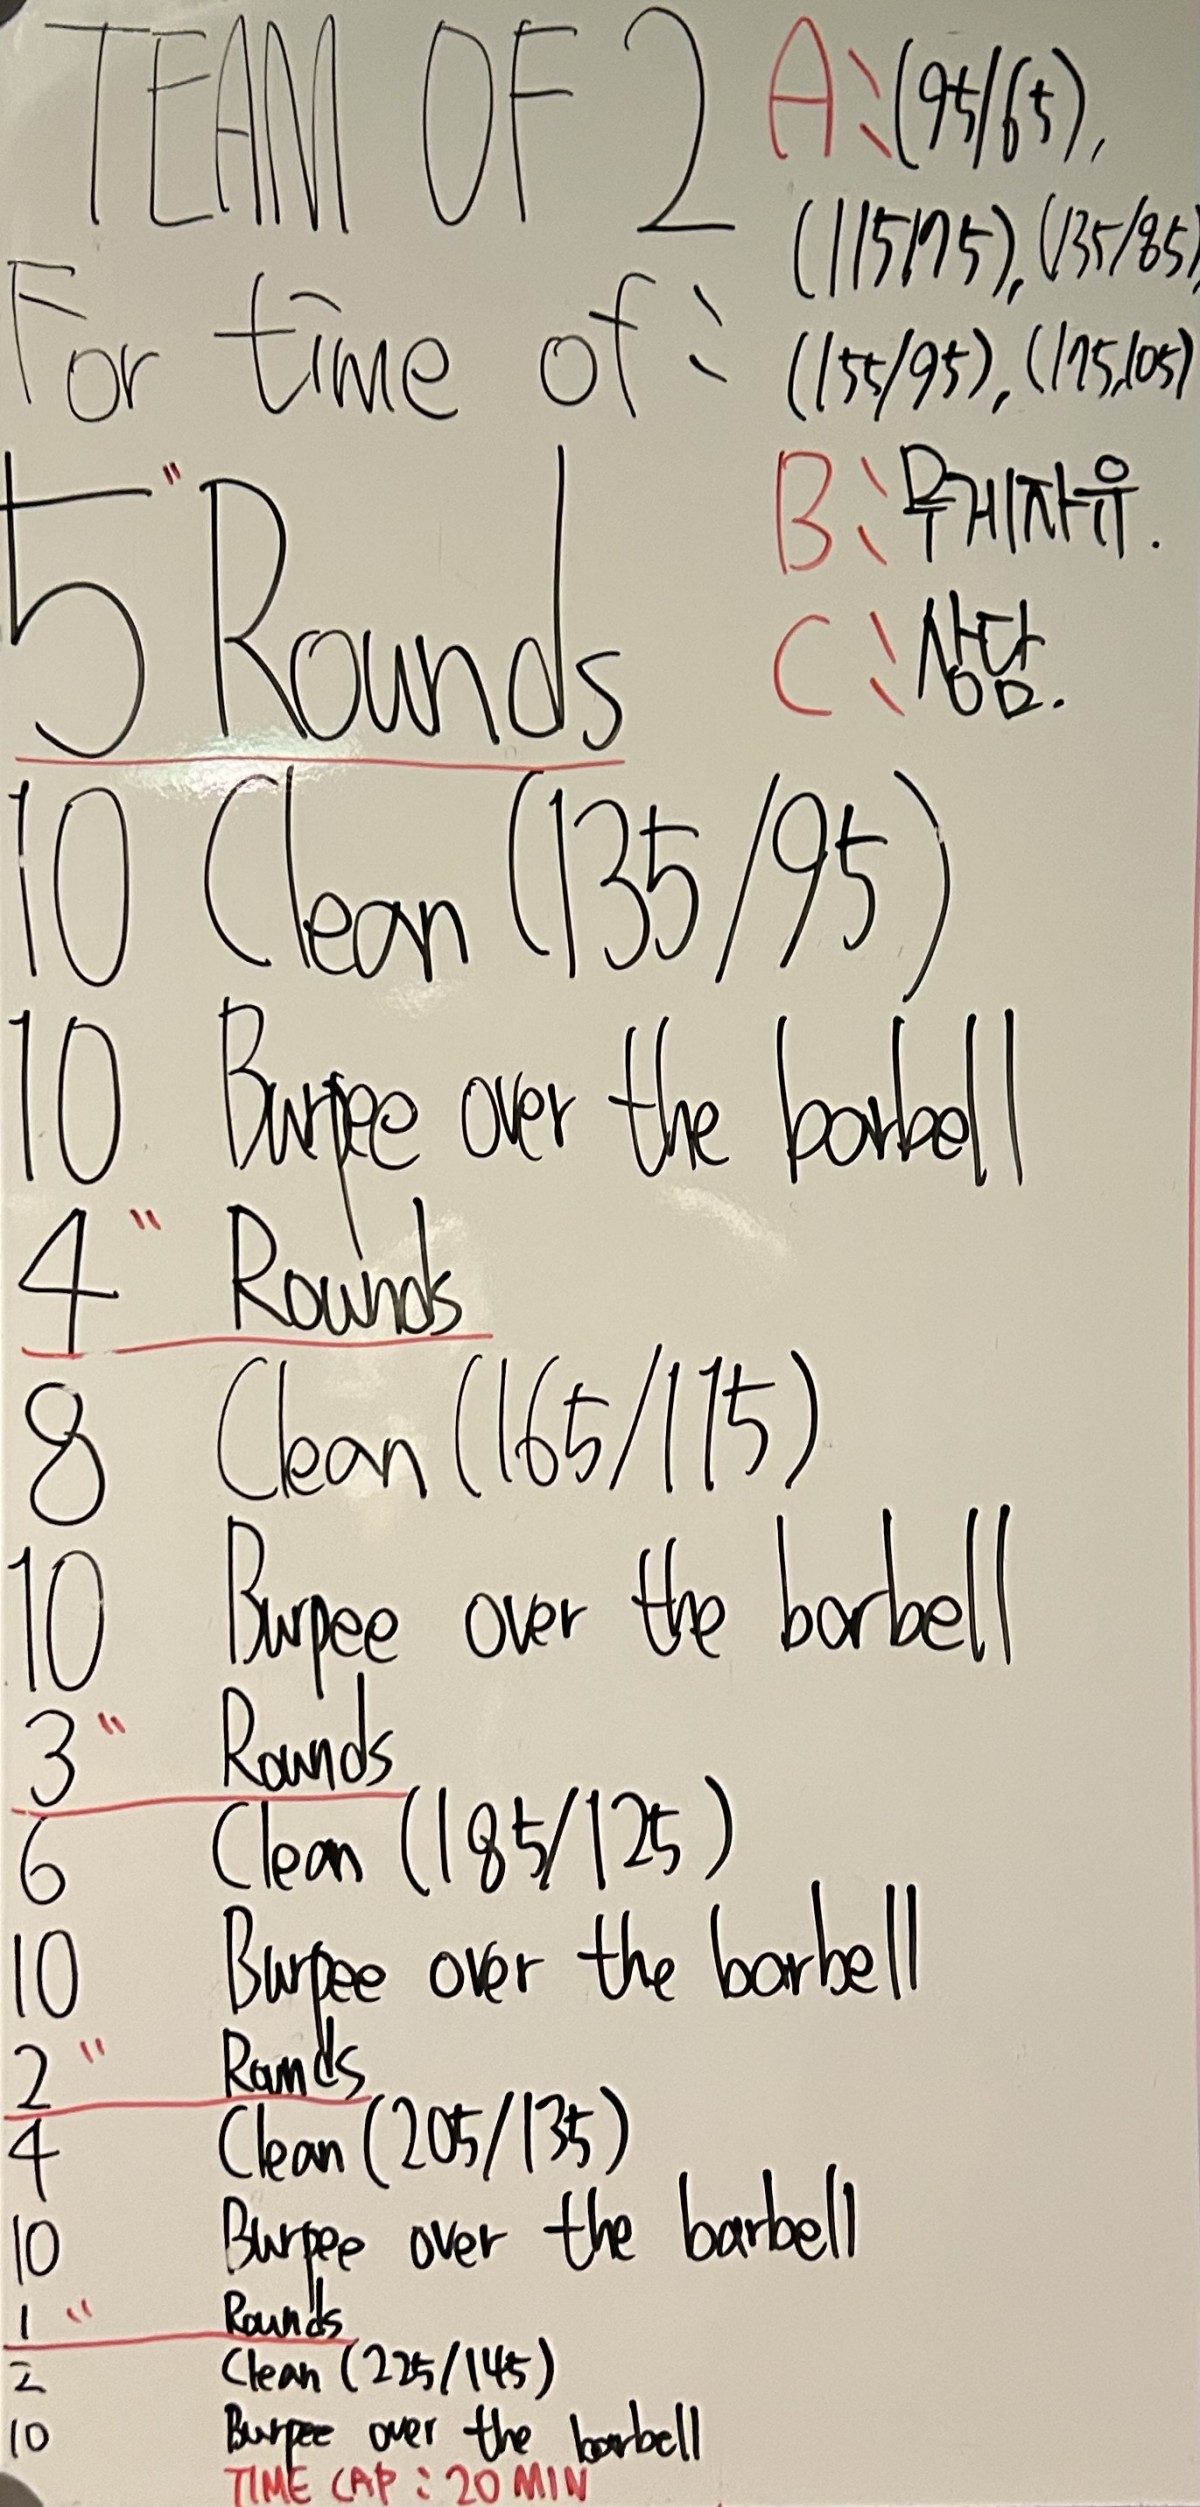 TEAM OF 2
For time of:
A: (95/65),
(115/75), (135/85)
(155/95), (175/105)
B: 무게자유.
C: 상담.
5" Rounds
10 Clean (135/95)
10 Burpee over the barbell
4" Rounds
8 Clean (165/115)
10 Burpee over the barbell
3" Rounds
6 Clean (185/125)
10 Burpee over the barbell
2" Rounds
4 Clean (205/135)
10 Burpee over the barbell
1" Rounds
2 Clean (225/145)
10 Burpee over the barbell
TIME CAP: 20 MIN